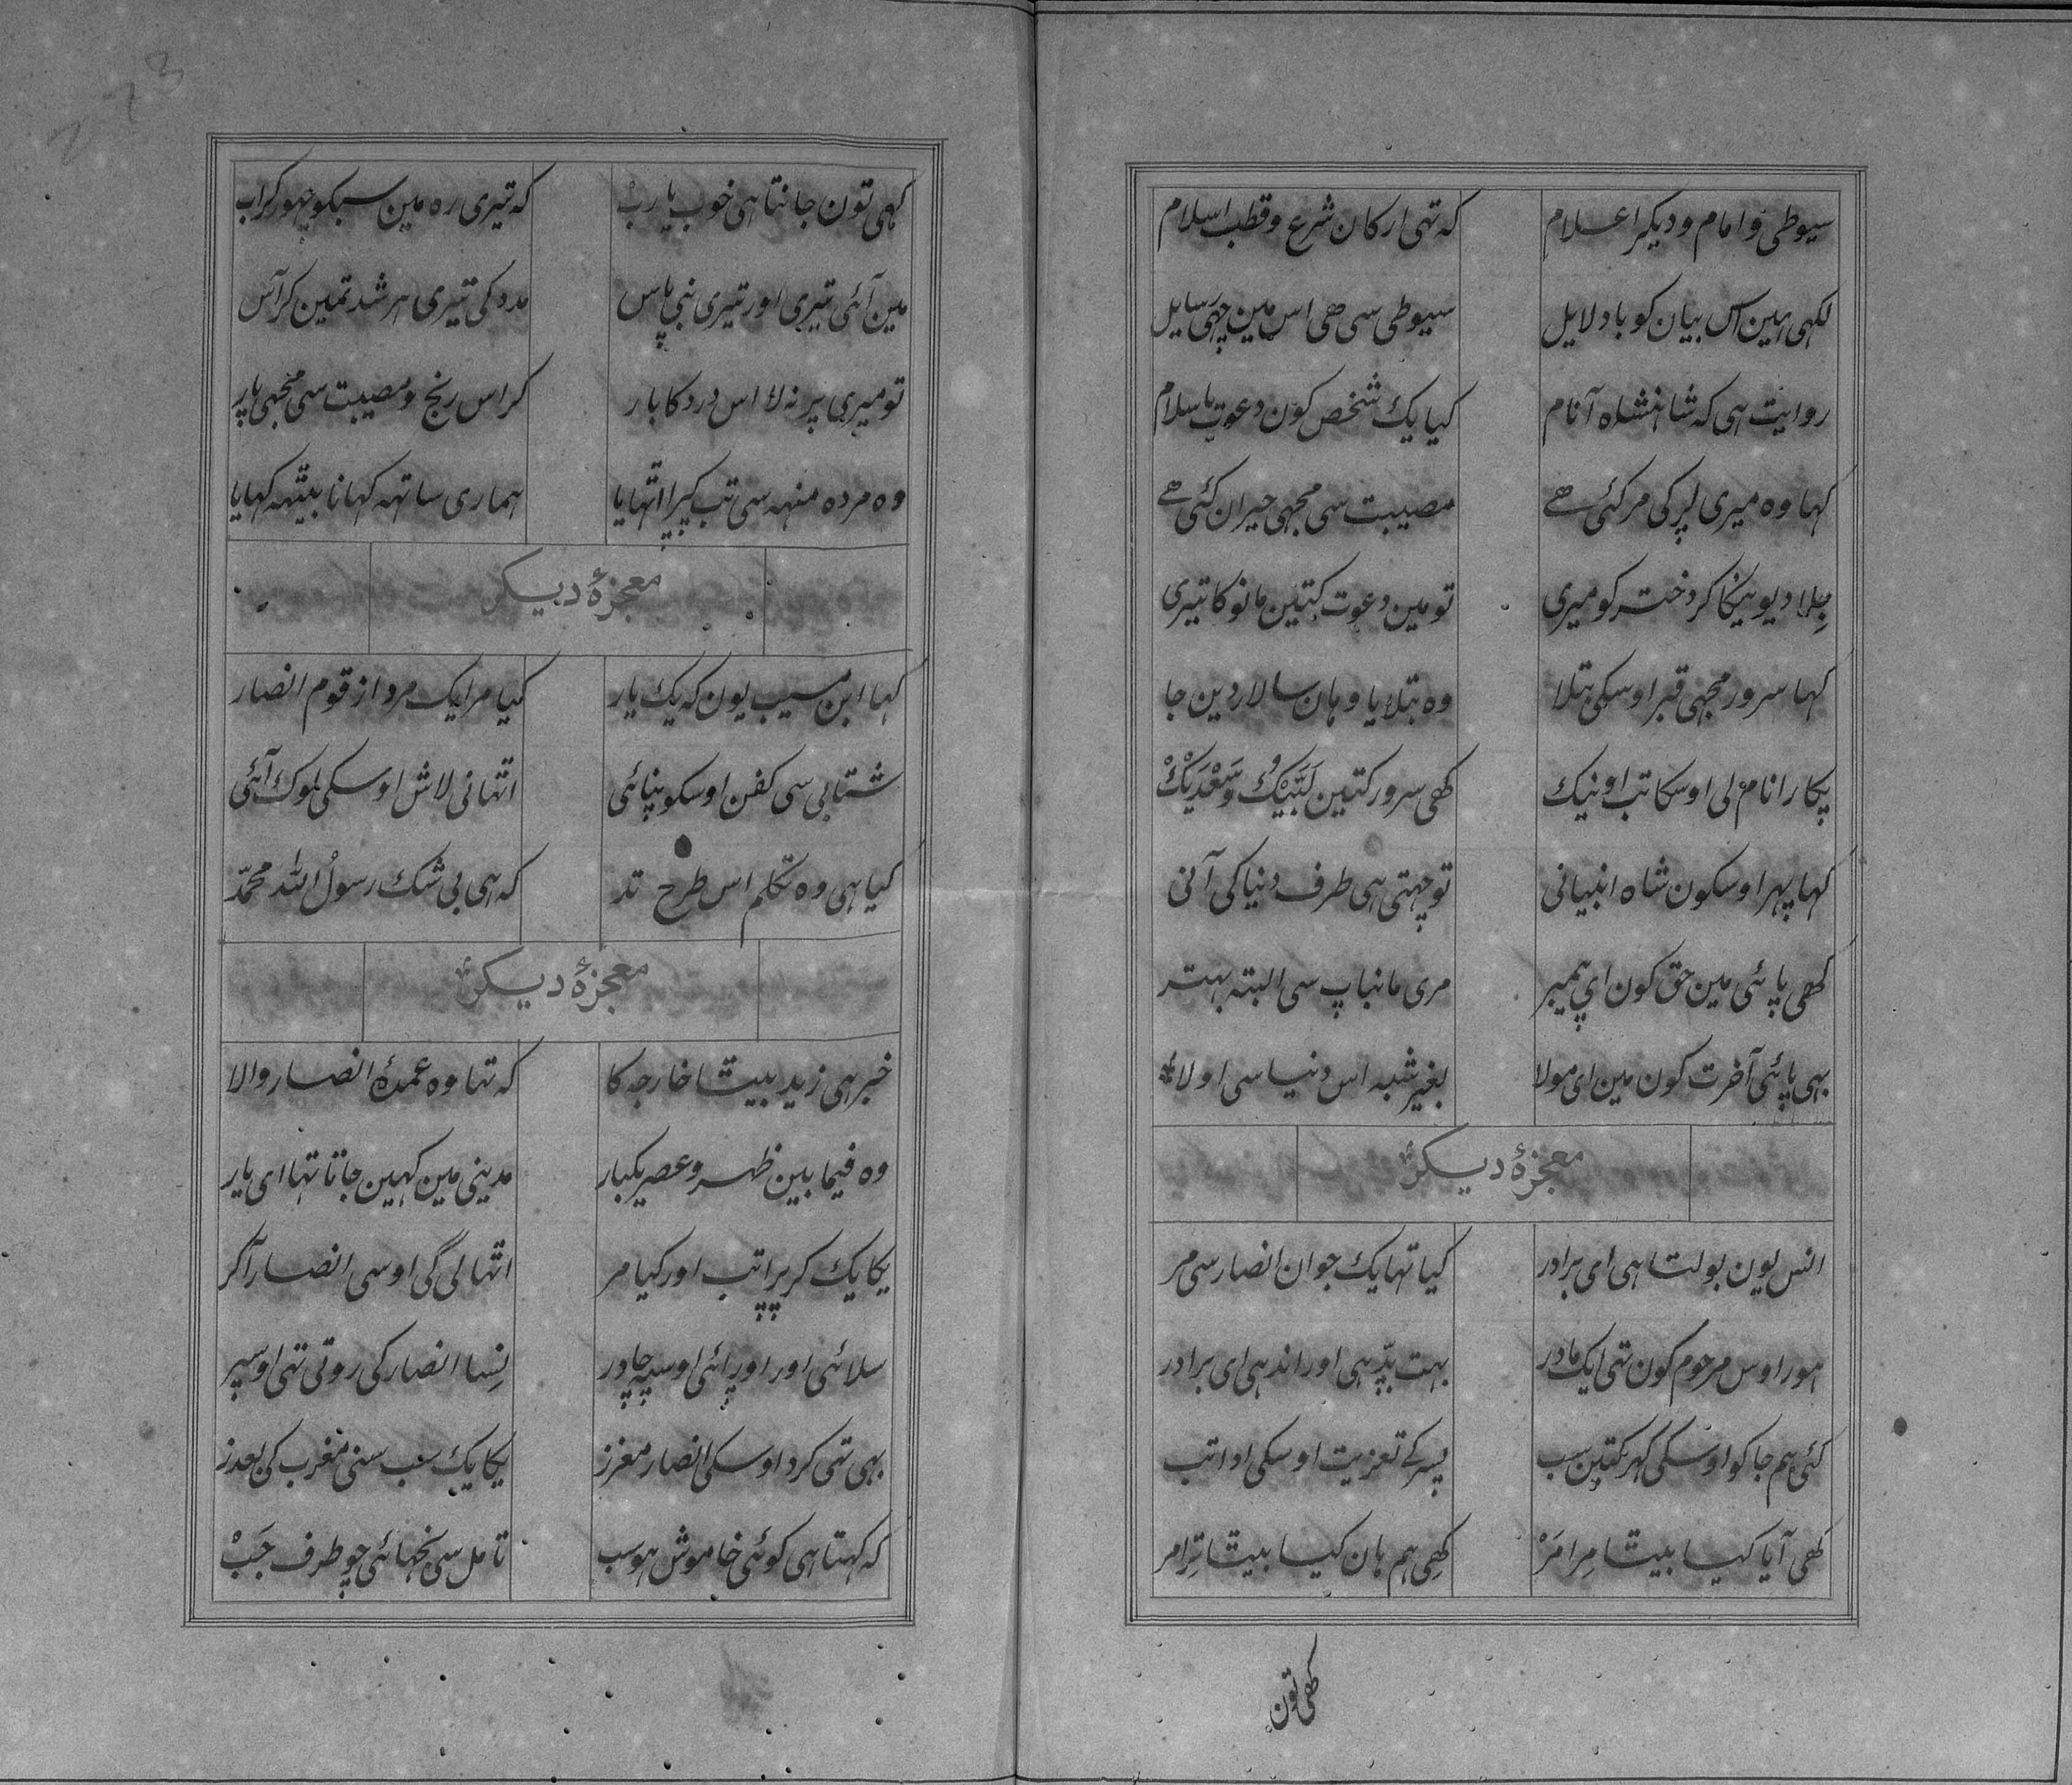 سیوطی و امام و دیکر اعلام کہ تہی ارکان شرع و قطب اسلام
لکہی ہین اس بیان کو با دلایل سیوطی سی ھی اس مین چہی سایل
روایت ہی کہ شاہنشاہ آنام کیا یک شخص کون دعوت باسلام
کہا وہ میری لرکی مر کئی ھے مصیبت سی مجہی حیران کئی ھے
جِلا دیوینکا کر دختر کو میری تو مین دعوت کتین مانوکا تیری
کہا سرور مجہی قبر اوسکی بتلا وہ بتلایا وہان سالار دین جا
پکارا نام لی اوسکا تب او نیک کھی سرور کتین لَبَّیْکَ وَسَعْدَیْکْ
کہا پہر اوسکون شاہ انبیانی تو چہتی ہی طرف دنیا کی آنی
کھی پائی مین حق کون ای پیمبر مری مانباپ سی البتہ بہتر
بہی پائی آخرت کون مین ای مولا بغیر شبہ اس دنیا سی اولا
معجزۂ دیکر
انس یون بولتا ہی ای برادر کیا تہا یک جوان انصار سی مر
ہور اوس مرحوم کون تہی ایک مادر بہت بدّہی اور اندہی ای برادر
کئی ہم جا کو اوسکی کہر کتین سب پسر کے تعزیت اوسکی ادا تب
کھی آیا کیا بیتا مِرا مَرْ کھی ہم ہان کیا بیتا تِرا مر
کھی تون
کہی تون جانتا ہی خوب یا ربْ کہ تیری رہ مین سبکو چہور کر اب
مین آئی تیری اور تیری نبی پاس مدد کی تیری ہر شدتمین کر آس
تو میری پر نہ لا اس درد کا بار کر اس رنج و مصیبت سی مجہی پار
وہ مردہ منہہ سی تب کپرا اتہایا ہماری ساتہہ کہانا بیتہہ کہایا
معجزۂ دیکر
کہا ابن مسیب یون کہ یک یار کیا مر ایک مرد از قوم انصار
شتابی سی کفن اوسکو پنہائی اتہانی لاش اوسکی لوک آئی
کیا ہی وہ تکلم اس طرح تد کہ ہی بی شک رسولُ اللہ محمّد
معجزۂ دیکر
خبر ہی زید بیتا خارجہ کا کہ تہا وہ عمدۂ انصار والا
وہ فیما بین ظہر و عصر یکبار مدینی مین کہین جاتا تہا ای یار
یکایک کر پرا تب اور کیا مر اتہا لی گی اوسی انصار آکر
سلائی اور اورائی اوسپہ چادر نِسا انصار کی روتی تہی اوسپر
بہی تہی کرد اوسکی انصار معزز یکایک سب سنی مغرب کی بعد از
کہ کہتا ہی کوئی خاموش ہو سب تامل سی نجہائی چو طرف جَبْ